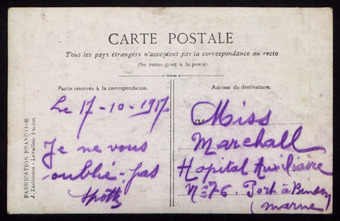 CARTE POSTALE
Tous les pays étrangers n'acceptent pas la correspondance au recto
(Se renseigner à la poste)
Partie réservée à la correspondance.
Adresse du destinataire.
Le 17-10-1917
Je ne vous
oublié-pas
Miss
Marchall
Hopital Auxiliaire
N=76. Port à Binson
(Marne
FABRICATION FRANÇAISE